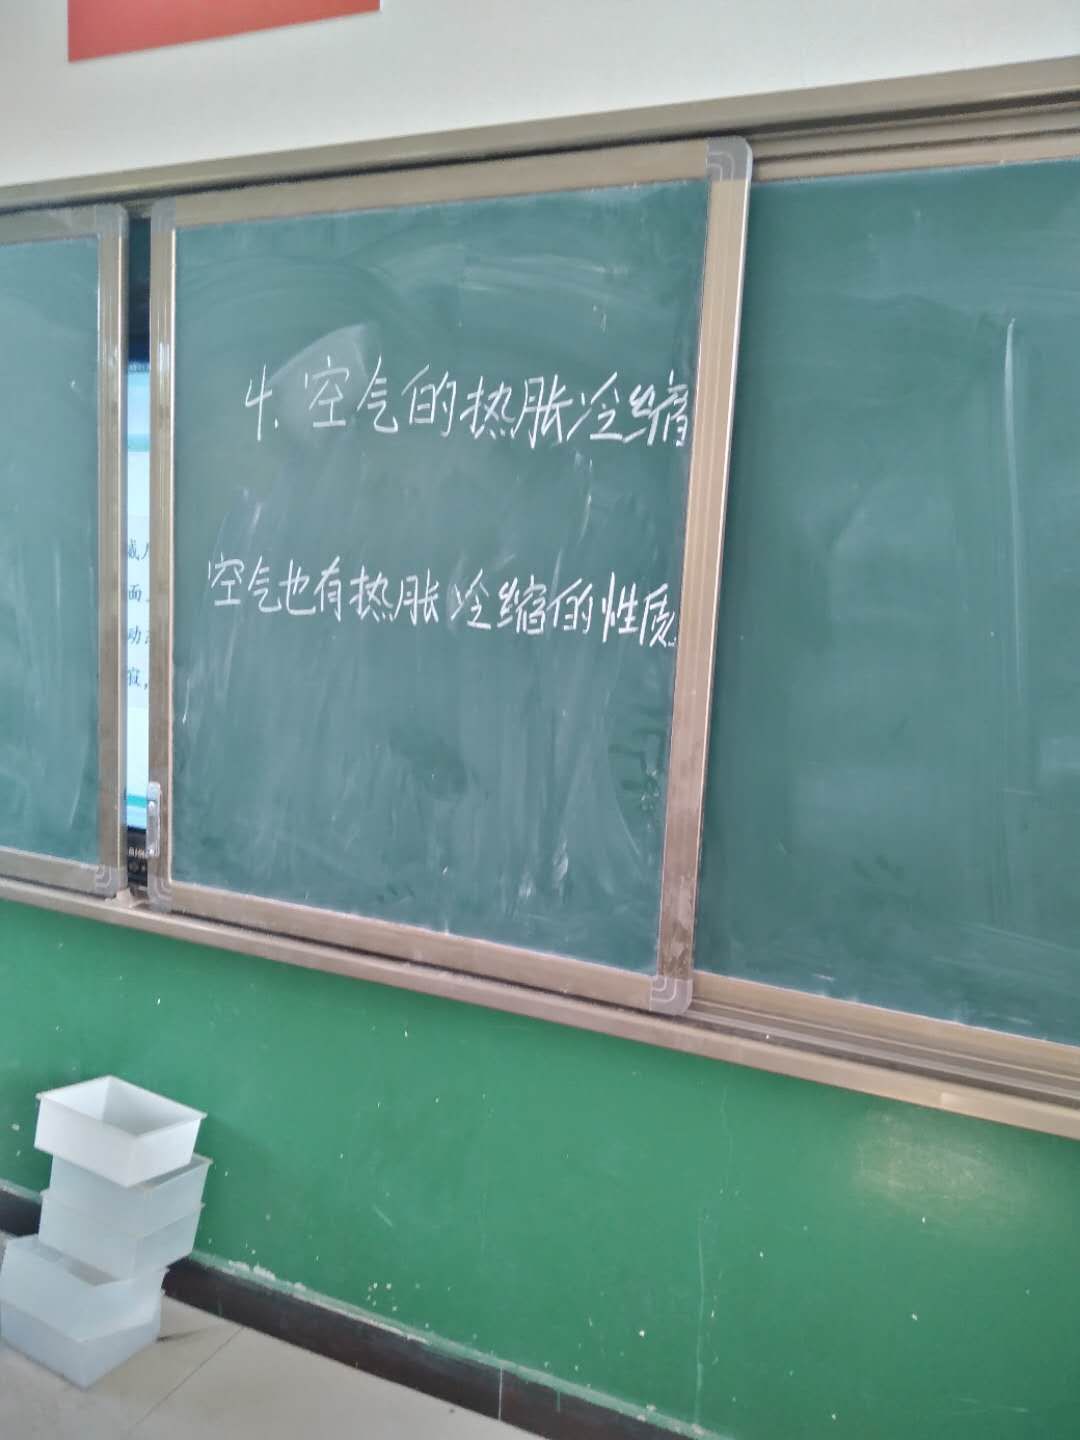 4. 空气的热胀冷缩
空气也有热胀冷缩的性质
面
动
寂,